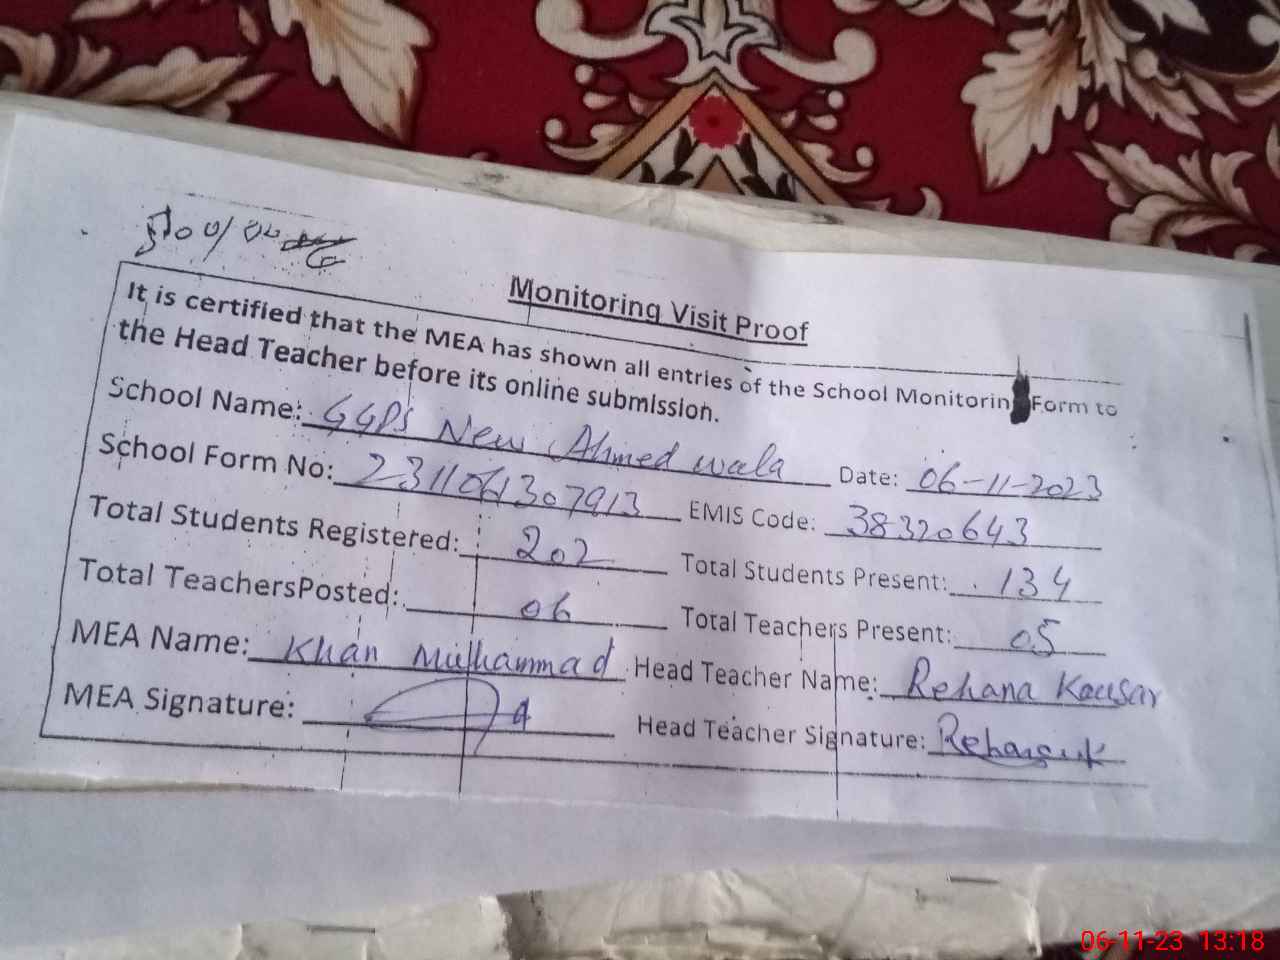 Monitoring Visit Proof
It is certified that the MEA has shown all entries of the School Monitorin Form to
the Head Teacher before its online submission.
School Name: GGPS New Ahmed wala Date: 06-11-2023
School Form No: 231106307913 EMIS Code: 38320643
Total Students Registered: 202 Total Students Present: 134
Total TeachersPosted: 06 Total Teachers Present: 05
MEA Name: Khan Muhammad Head Teacher Name: Rehana Kousar
MEA Signature: Head Teacher Signature:
06-11-23 13:18